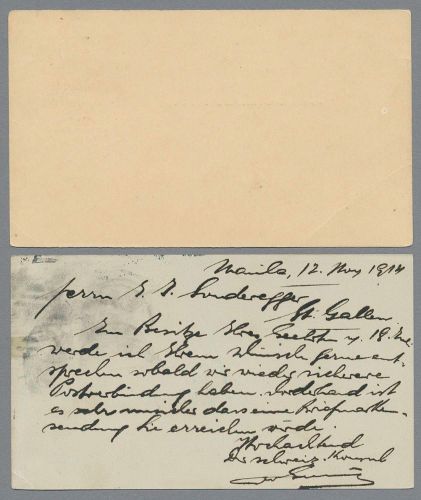 Manila, 12. Nov 1914
Herrn E. J. Sonderegger
St. Gallen
Im Besitze Ihres Geehrten v. 18.
werde ich Ihrem Wunsch gerne ent-
sprechen sobald wir wieder sichere
Postverbindung haben. Vorderhand ist
es sehr unsicher dass eine Briefmarken-
sendung Sie erreichen würde.
Hochachtend
Der schweiz. Konsul